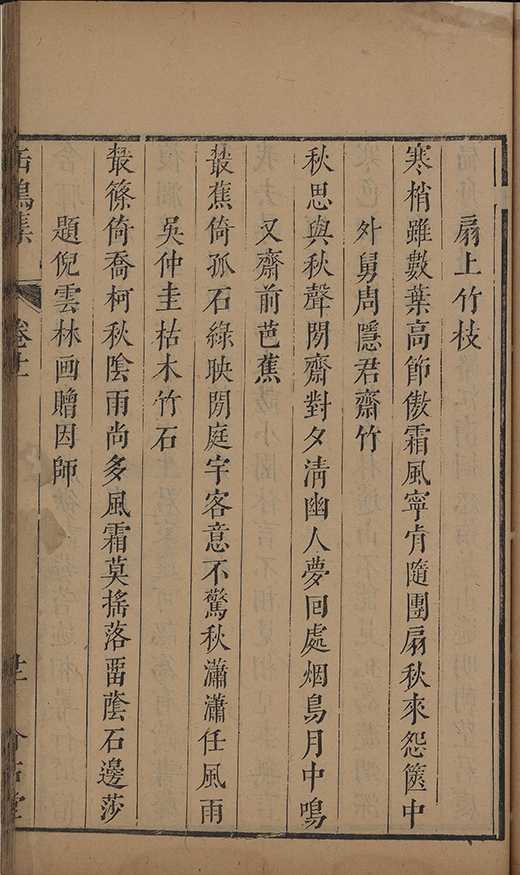 扇上竹枝
寒梢雖數葉高節傲霜風寧肯隨團扇秋來怨篋中
外舅周隱君齋竹
秋思與秋聲閒齋對夕淸幽人夢回處烟鳥月中鳴
又齋前芭蕉
叢蕉倚孤石綠映閒庭宇客意不驚秋瀟瀟任風雨
吳仲圭枯木竹石
叢篠倚喬柯秋陰雨尚多風霜莫搖落畱蔭石邊莎
題倪雲林画贈因師
卷十